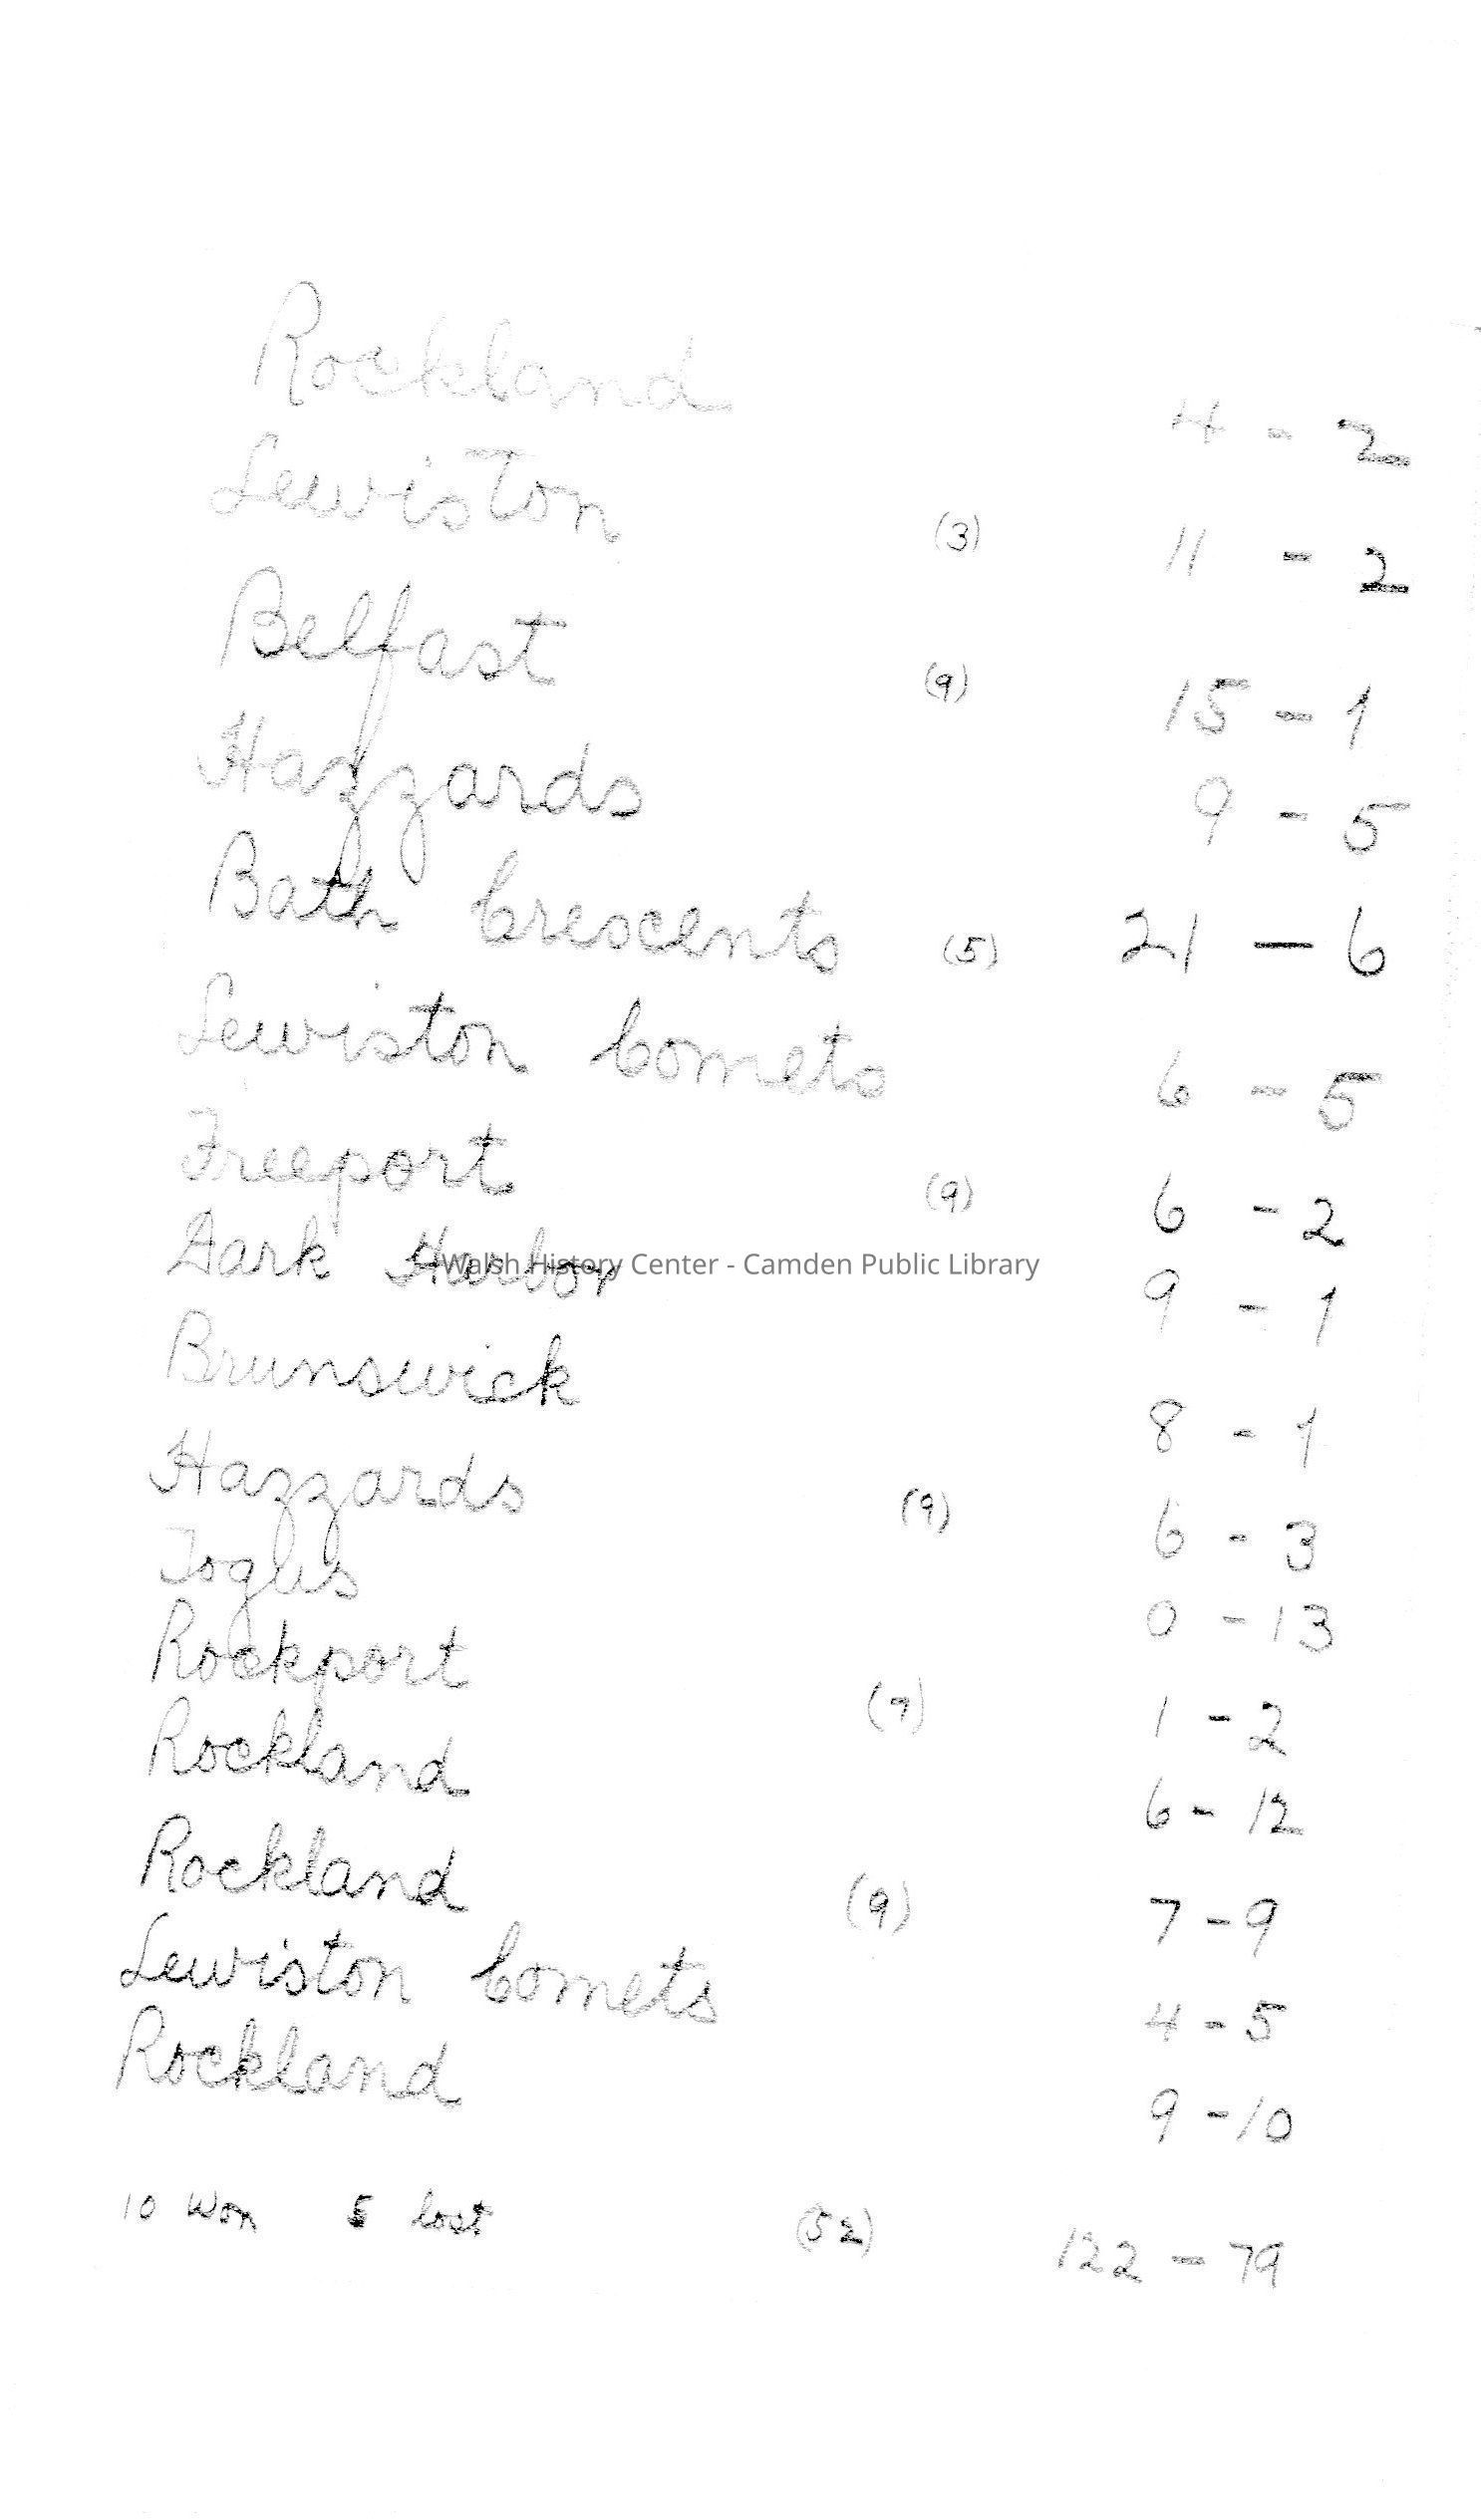 Rockland 4 - 2
Lewiston (3) 11 - 2
Belfast (9) 15 - 1
Hazzards 9 - 5
Bath Crescents (5) 21 - 6
Lewiston Comets 6 - 5
Freeport (9) 6 - 2
Dark Harbor 9 - 1
Walsh History Center - Camden Public Library
Brunswick 8 - 1
Hazzards (9) 6 - 3
Togus 0 - 13
Rockport 1 - 2
Rockland 6 - 12
Rockland (9) 7 - 9
Lewiston Comets 4 - 5
Rockland 9 - 10
10 Won lost (52) 122 - 79